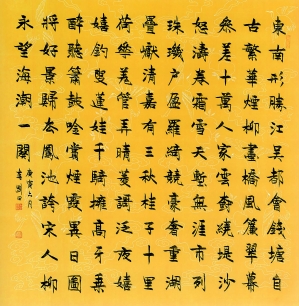 東南形勝江吳都會錢塘自
古繁華煙柳畫橋風簾翠幕
參差十萬人家雲樹繞堤沙
怒濤卷霜雪天塹無涯市列
珠璣戶盈羅綺競豪奢重湖
疊巘清嘉有三秋桂子十里
荷華羌管弄晴菱謌泛夜嬉
嬉釣叟蓮娃千騎擁高牙乘
醉聽簫鼓吟賞煙霞異日圖
將好景歸去鳳池誇宋人柳
永望海潮一闋
庚寅六月